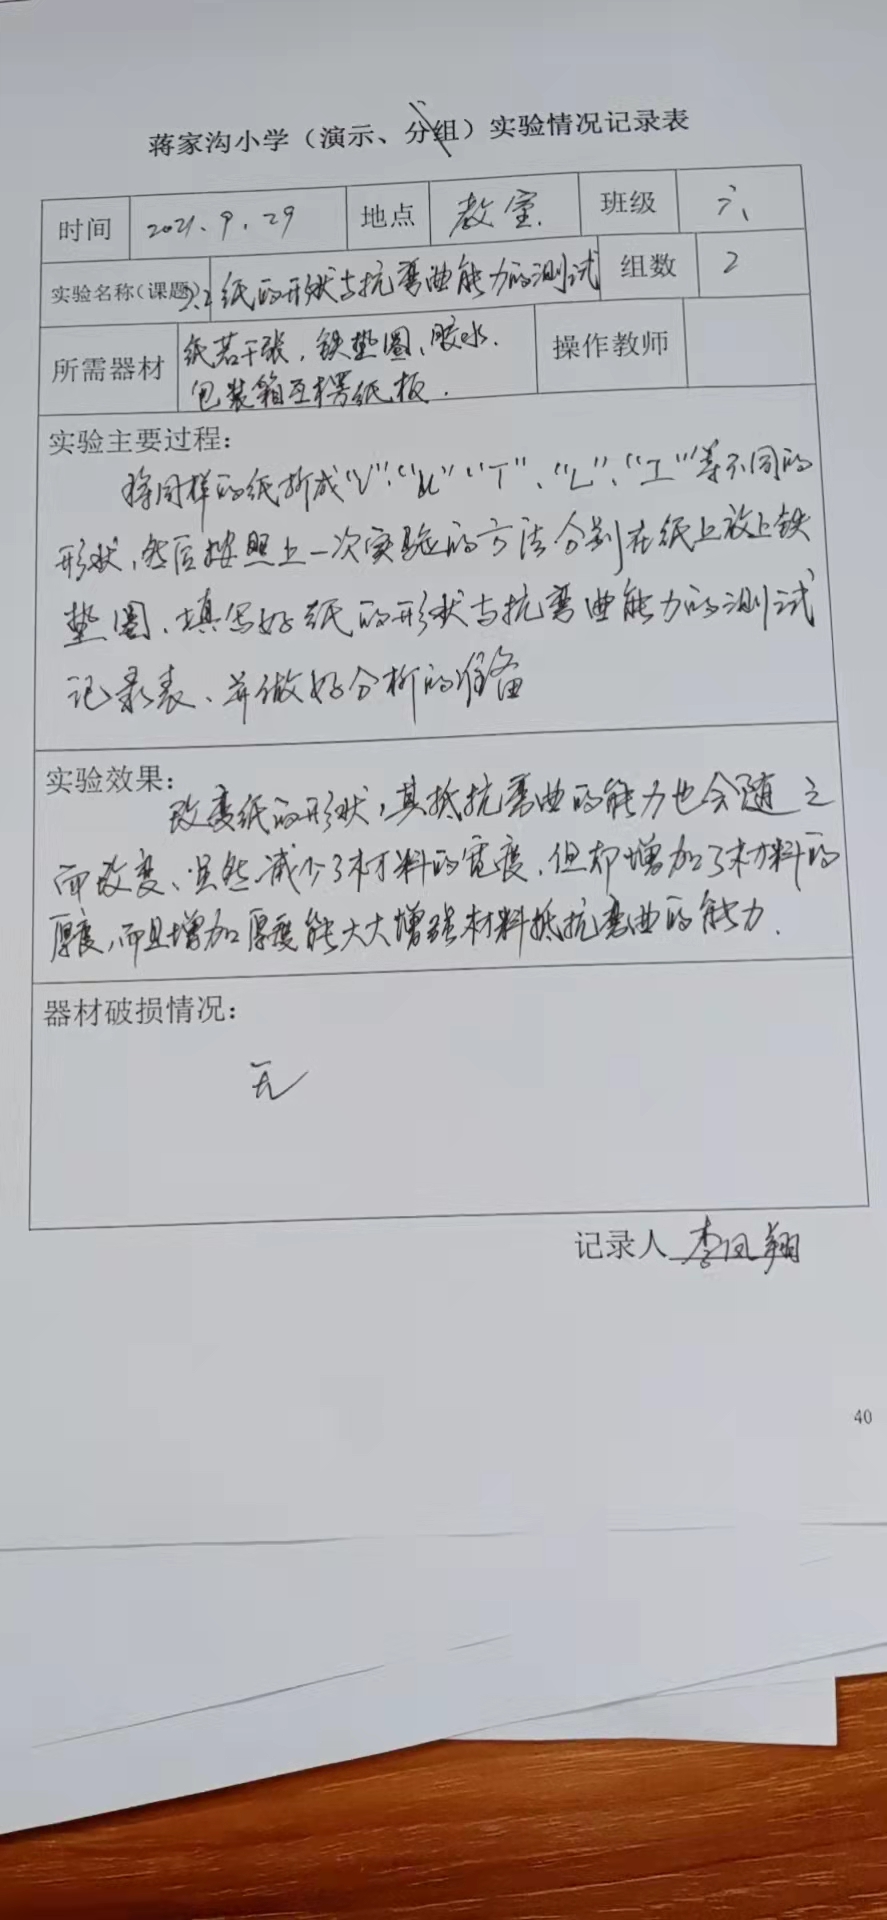 蒋家沟小学（演示、分组）实验情况记录表
时间 2021.9.29 地点 教室. 班级 六
实验名称（课题） 2.2 纸的形状与抗弯曲能力的测试 组数 2
所需器材 纸若干张，铁垫圈、胶水. 操作教师
包装箱瓦楞纸板.
实验主要过程：
将同样的纸折成“V”、“U”“T”、“L”、“工”等不同的
形状，然后按照上一次实验的方法分别在纸上放上铁
垫圈、填写好纸的形状与抗弯曲能力的测试
记录表、并做好分析的准备
实验效果：
改变纸的形状，其抵抗弯曲的能力也会随之
而改变、虽然减少了材料的宽度、但却增加了材料的
厚度，而且增加厚度能大大增强材料抵抗弯曲的能力.
器材破损情况：
无
记录人 李凤翔
40